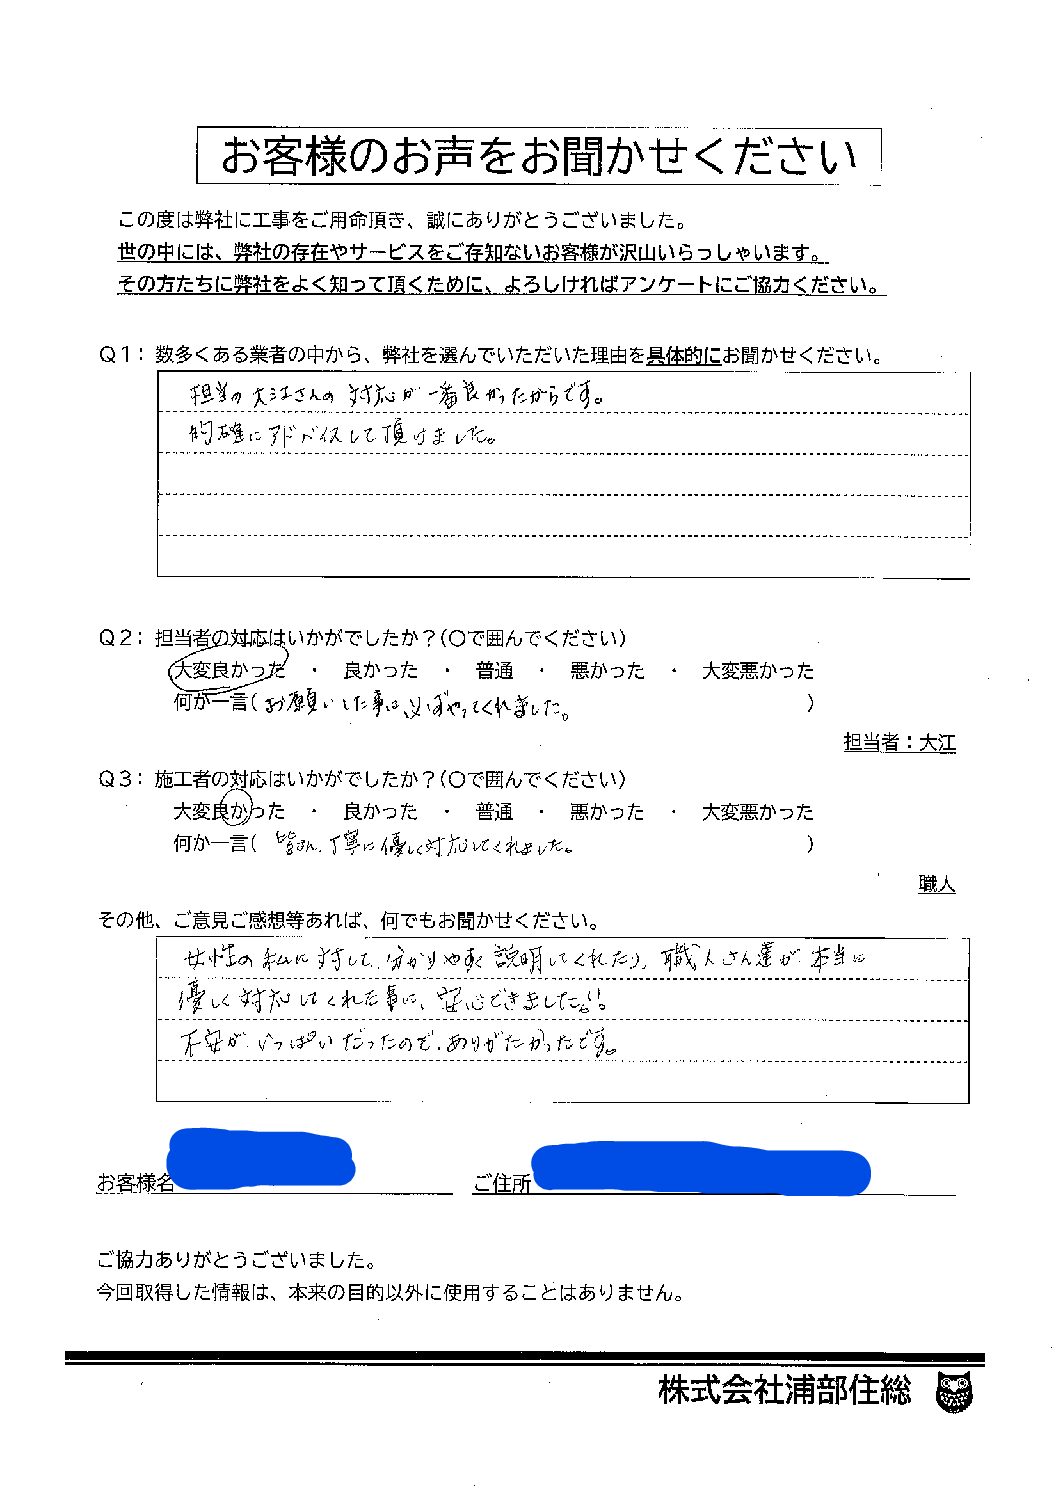 お客様のお声をお聞かせください
この度は弊社に工事をご用命頂き、誠にありがとうございました。
世の中には、弊社の存在やサービスをご存知ないお客様が沢山いらっしゃいます。
その方たちに弊社をよく知って頂くために、よろしければアンケートにご協力ください。
Q1：数多くある業者の中から、弊社を選んでいただいた理由を具体的にお聞かせください。
担当の大江さんの対応が一番良かったからです。
的確にアドバイスして頂けました。
Q2：担当者の対応はいかがでしたか？（〇で囲んでください）
大変良かった ・ 良かった ・ 普通 ・ 悪かった ・ 大変悪かった
何か一言（お願いした事は必ずやってくれました。）
担当者：大江
Q3：施工者の対応はいかがでしたか？（〇で囲んでください）
大変良かった ・ 良かった ・ 普通 ・ 悪かった ・ 大変悪かった
何か一言（皆さん、丁寧に優しく対応してくれました。）
職人
その他、ご意見ご感想等あれば、何でもお聞かせください。
女性の私に対して、分かりやすく説明してくれたり、職人さん達が本当に
優しく対応してくれた事に、安心できました!!
不安がいっぱいだったので、ありがたかったです。
お客様名 ご住所
ご協力ありがとうございました。
今回取得した情報は、本来の目的以外に使用することはありません。
株式会社浦部住総